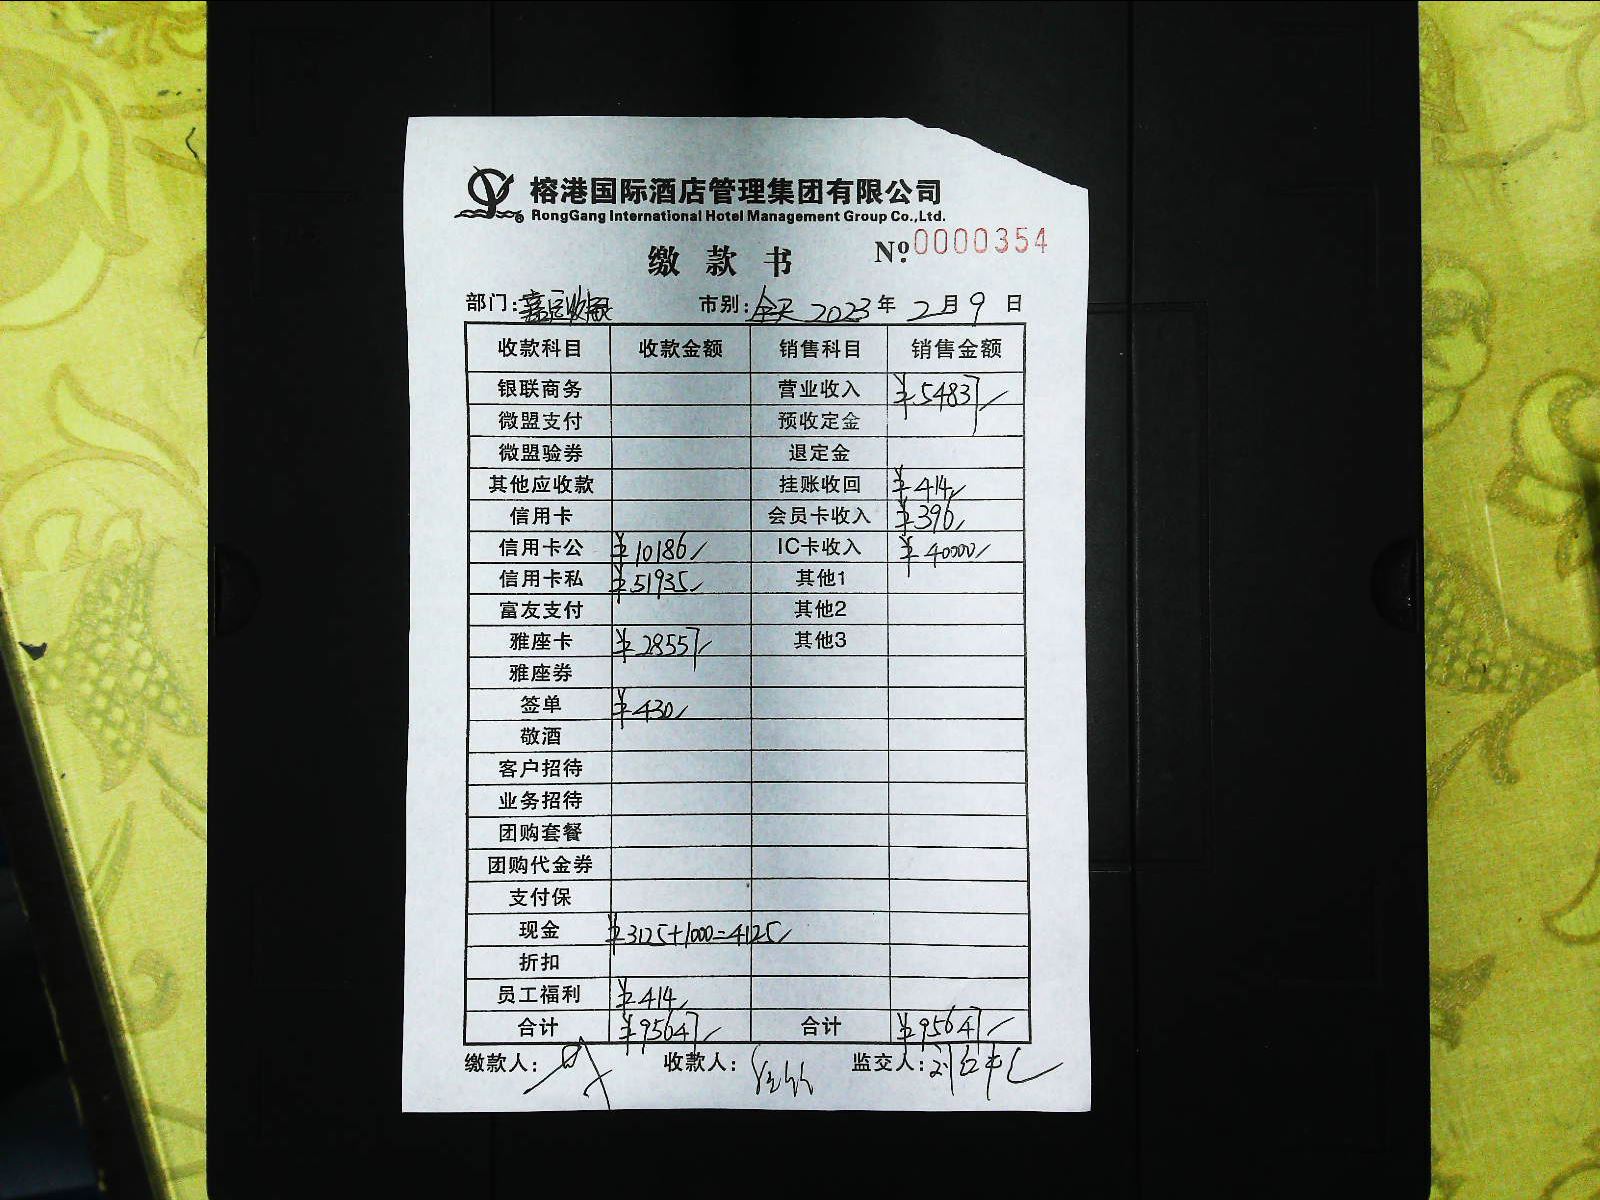 榕港国际酒店管理集团有限公司
RongGang International Hotel Management Group Co.,Ltd.
缴款书 Nº 0000354
部门: 收银 市别: 全天 2023年 2月 9日
收款科目 收款金额 销售科目 销售金额
银联商务 营业收入 ¥54837
微盟支付 预收定金
微盟验券 退定金
其他应收款 挂账收回 ¥414
信用卡 会员卡收入 ¥396
信用卡公 ¥10186 IC卡收入 ¥40000
信用卡私 ¥51935 其他1
富友支付 其他2
雅座卡 ¥28557 其他3
雅座券
签单 ¥430
敬酒
客户招待
业务招待
团购套餐
团购代金券
支付保
现金 ¥3125+1000=4125
折扣
员工福利 ¥414
合计 ¥95647 合计 ¥95647
缴款人: 收款人: 监交人: